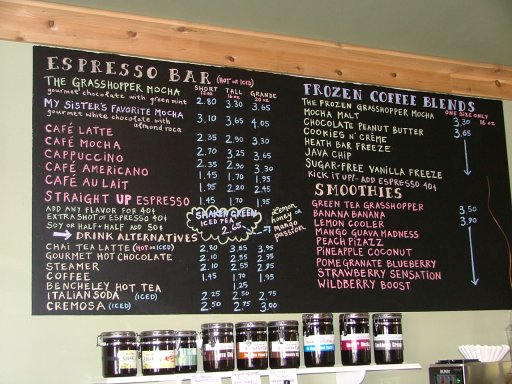 ESPRESSO BAR (HOT OR ICED) SHORT TALL 16 oz GRANDE 20 oz
THE GRASSHOPPER MOCHA 2.80 3.30 3.65
gourmet chocolate with green mint
MY SISTER'S FAVORITE MOCHA 3.10 3.65 4.05
gourmet white chocolate with
almond roca
CAFÉ LATTE 2.35 2.90 3.30
CAFÉ MOCHA 2.70 3.25 3.65
CAPPUCCINO 2.35 2.90 3.30
CAFÉ AMERICANO 1.45 1.70 1.95
CAFÉ AU LAIT 1.95 2.20 2.45
STRAIGHT UP ESPRESSO 1.45 1.70 1.95
ADD ANY FLAVOR FOR 40¢
EXTRA SHOT OF ESPRESSO 40¢
SOY OR HALF + HALF ADD 50¢
SHAKEN GREEN
ICED TEA
2.65
Lemon
honey
or
mango
passion
DRINK ALTERNATIVES
CHAI TEA LATTE (HOT OR ICED) 3.55 3.95
GOURMET HOT CHOCOLATE 2.10 2.55 2.95
STEAMER 2.10 2.55 2.95
COFFEE 1.45 1.70 1.95
BENCHELEY HOT TEA 1.25
ITALIAN SODA (ICED) 2.25 2.50 2.75
CREMOSA (ICED) 2.50 2.75 3.00
FROZEN COFFEE BLENDS
ONE SIZE ONLY
16 oz
THE FROZEN GRASSHOPPER MOCHA 3.30
MOCHA MALT 3.65
CHOCOLATE PEANUT BUTTER
COOKIES N' CRÈME
HEATH BAR FREEZE
JAVA CHIP
SUGAR-FREE VANILLA FREEZE
KICK IT UP!- ADD ESPRESSO 40¢
SMOOTHIES
GREEN TEA GRASSHOPPER 3.50
BANANA BANANA 3.90
LEMON COOLER
MANGO GUAVA MADNESS
PEACH PIZAZZ
PINEAPPLE COCONUT
POMEGRANATE BLUEBERRY
STRAWBERRY SENSATION
WILDBERRY BOOST